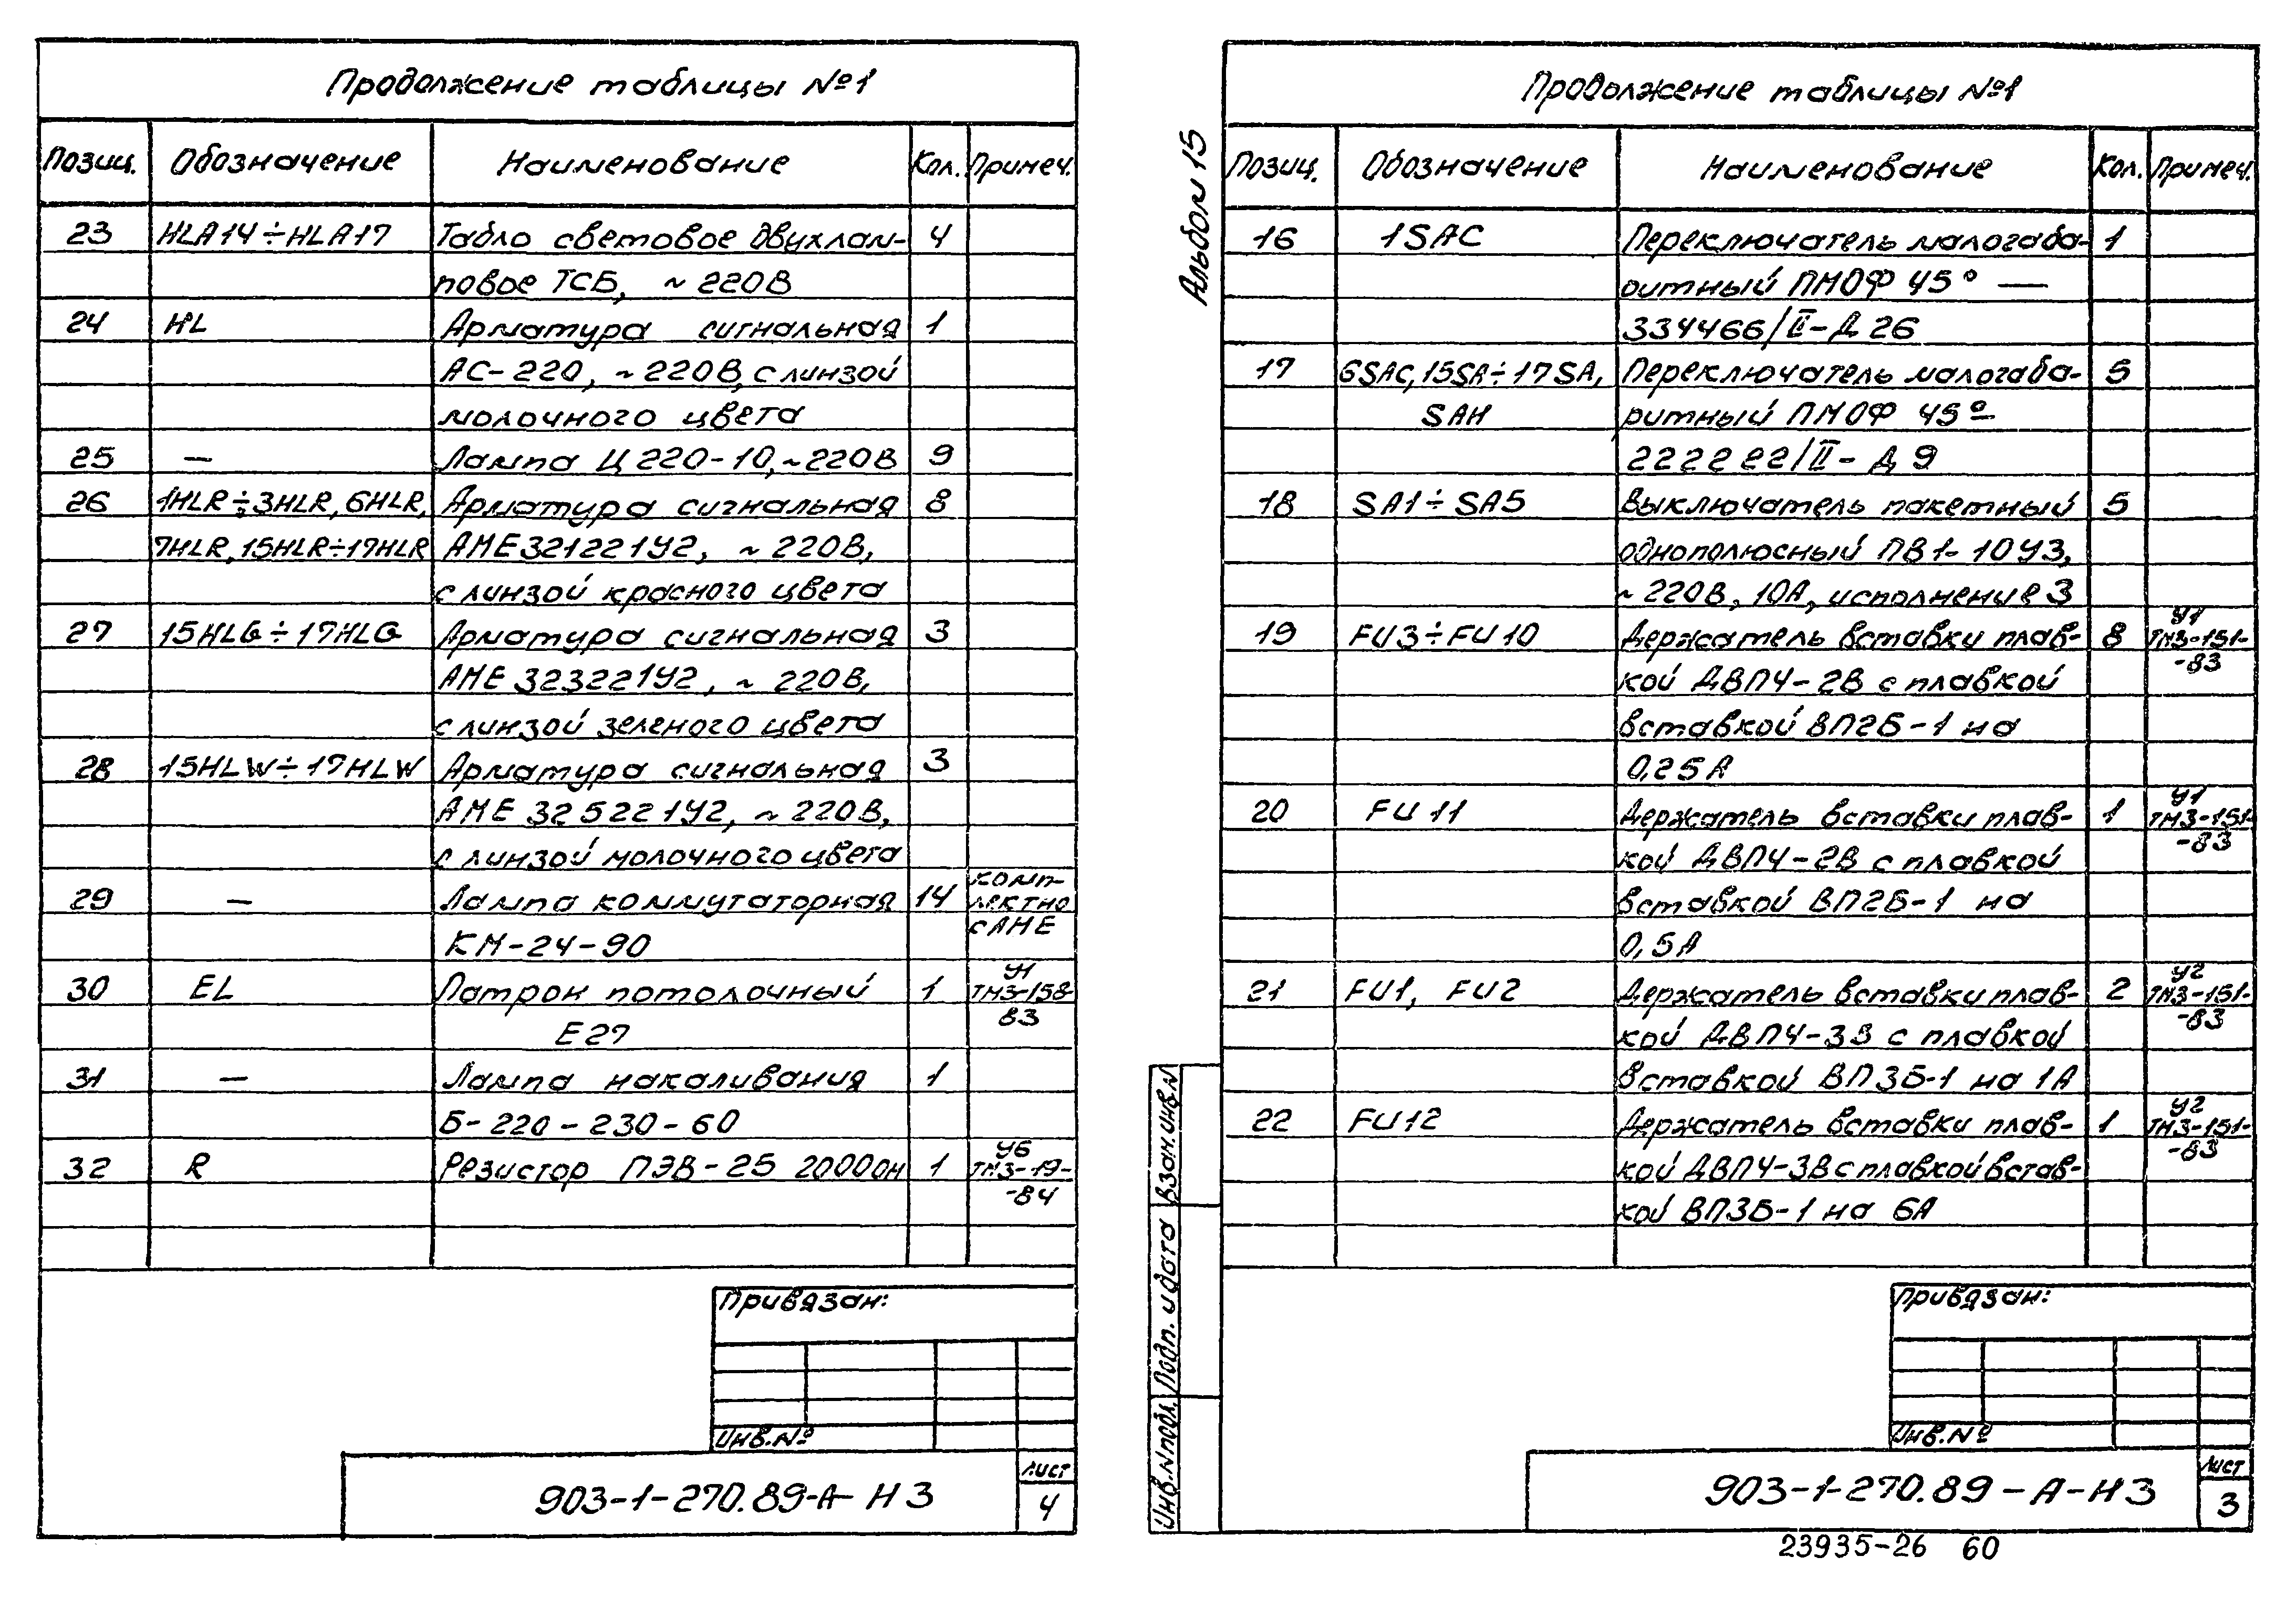 Продолжение таблицы №1
Позиц. Обозначение Наименование Кол. Примеч.
23 HLA14÷HLA17 Табло световое двухлам- 4
повое ТСБ, ~220В
24 HL Арматура сигнальная 1
АС-220, ~220В, с линзой
молочного цвета
25 — Лампа Ц220-10, ~220В 9
26 1HLR÷3HLR, 6HLR, Арматура сигнальная 8
7HLR, 15HLR÷17HLR АМЕ321221У2, ~220В,
с линзой красного цвета
27 15HLG÷17HLG Арматура сигнальная 3
АМЕ323221У2, ~220В,
с линзой зеленого цвета
28 15HLW÷17HLW Арматура сигнальная 3
АМЕ325221У2, ~220В,
с линзой молочного цвета
29 — Лампа коммутаторная 14 комп-
лектно
КМ-24-90 с АМЕ
30 EL Патрон потолочный 1 У1
ТМ3-158-
Е27 83
31 — Лампа накаливания 1
Б-220-230-60
32 R Резистор ПЭВ-25 2000Ом 1 У6
ТМ3-19-
-84
Привязан:
Инв.№
903-1-270.89-А-НЗ
Лист
4
Альбом 15
Продолжение таблицы №1
Позиц. Обозначение Наименование Кол. Примеч.
16 1SAC Переключатель малогаба- 1
ритный ПМОФ 45° —
334466/II-Д26
17 6SAC, 15SA÷17SA, Переключатель малогаба- 5
SAH ритный ПМОФ 45°-
222222/II-Д9
18 SA1÷SA5 Выключатель пакетный 5
однополюсный ПВ1-10У3,
~220В, 10А, исполнение 3
19 FU3÷FU10 Держатель вставки плав- 8 У1
ТМ3-151-
кой ДВП4-2В с плавкой -83
вставкой ВП2Б-1 на
0,25А
20 FU11 Держатель вставки плав- 1 У1
ТМ3-151-
кой ДВП4-2В с плавкой -83
вставкой ВП2Б-1 на
0,5А
21 FU1, FU2 Держатель вставки плав- 2 У2
ТМ3-151-
кой ДВП4-3В с плавкой -83
вставкой ВП3Б-1 на 1А
22 FU12 Держатель вставки плав- 1 У2
ТМ3-151-
кой ДВП4-3В с плавкой встав- -83
кой ВП3Б-1 на 6А
Взам.инв.N
Подп. и дата
Инв.N подл.
Привязан:
Инв.№
903-1-270.89-А-НЗ
Лист
3
23935-26 60